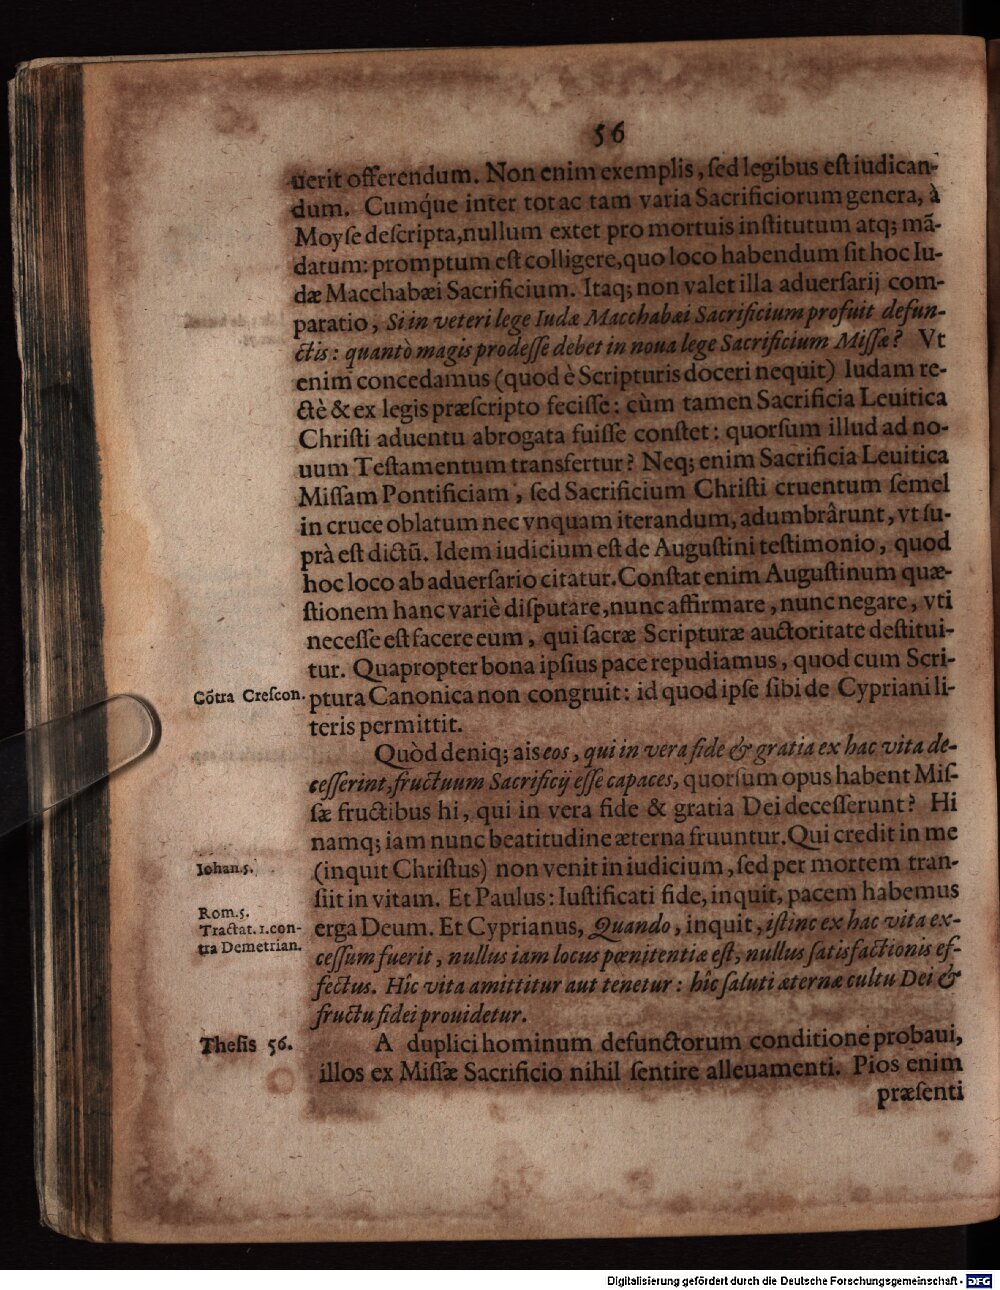 56
uerit offerendum. Non enim exemplis, ſed legibus eſt iudican-
dum. Cumque inter tot ac tam varia Sacrificiorum genera, à
Moyſe deſcripta, nullum extet pro mortuis inſtitutum atq; mã-
datum: promptum eſt colligere, quo loco habendum ſit hoc Iu-
dæ Macchabæi Sacrificium. Itaq; non valet illa aduerſarij com-
paratio, Si in veteri lege Iudæ Macchabæi Sacrificium profuit defun-
ctis: quantò magis prodeſſe debet in noua lege Sacrificium Miſſæ? Vt
enim concedamus (quod è Scripturis doceri nequit) Iudam re-
ctè & ex legis præſcripto feciſſe: cùm tamen Sacrificia Leuitica
Chriſti aduentu abrogata fuiſſe conſtet: quorſum illud ad no-
uum Teſtamentum transfertur? Neq; enim Sacrificia Leuitica
Miſſam Pontificiam, ſed Sacrificium Chriſti cruentum ſemel
in cruce oblatum nec vnquam iterandum, adumbrârunt, vt ſu-
prà eſt dictũ. Idem iudicium eſt de Auguſtini teſtimonio, quod
hoc loco ab aduerſario citatur. Conſtat enim Auguſtinum quæ-
ſtionem hanc variè diſputare, nunc affirmare, nunc negare, vti
neceſſe eſt facere eum, qui ſacræ Scripturæ auctoritate deſtitui-
tur. Quapropter bona ipſius pace repudiamus, quod cum Scri-
Cõtra Creſcon.
ptura Canonica non congruit: id quod ipſe ſibi de Cypriani li-
teris permittit.
Quòd deniq; ais eos, qui in vera fide & gratia ex hac vita de-
ceſſerint, fructuum Sacrificij eſſe capaces, quorſum opus habent Miſ-
ſæ fructibus hi, qui in vera fide & gratia Dei deceſſerunt? Hi
namq; iam nunc beatitudine æterna fruuntur. Qui credit in me
Iohan. 5.
(inquit Chriſtus) non venit in iudicium, ſed per mortem tran-
ſiit in vitam. Et Paulus: Iuſtificati fide, inquit, pacem habemus
Rom. 5.
Tractat. 1. con-
tra Demetrian.
erga Deum. Et Cyprianus, Quando, inquit, iſtinc ex hac vita ex-
ceſſum fuerit, nullus iam locus pœnitentiæ eſt, nullus ſatisfactionis ef-
fectus. Hîc vita amittitur aut tenetur: hîc ſaluti æternæ cultu Dei &
fructu fidei prouidetur.
Theſis 56.
A duplici hominum defunctorum conditione probaui,
illos ex Miſſæ Sacrificio nihil ſentire alleuamenti. Pios enim
præſenti
Digitalisierung gefördert durch die Deutsche Forschungsgemeinschaft - DFG